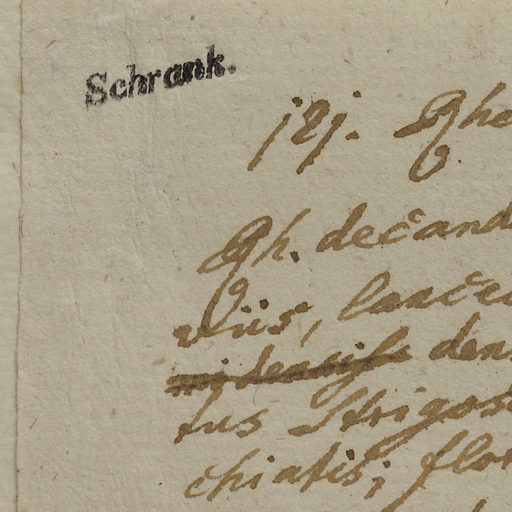 Schrank.
121. Rhe
Rh. decand
viis, lancea
dens
tus Strigos
chiatis; flor